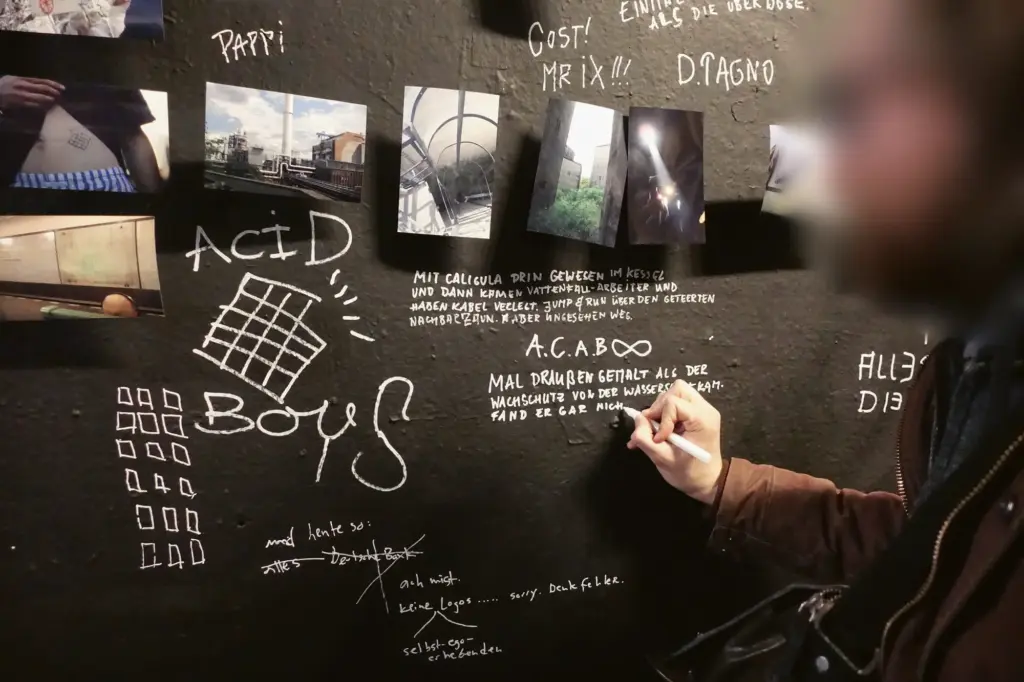 ALS DIE ÜBERDOSE.
PAPPI
COST!
MR IX!!!
D.TAGNO
ACID
BOYS
MIT CALIGULA DRIN GEWESEN IM KESSEL
UND DANN KAMEN VATTENFALL-ARBEITER UND
HABEN KABEL VERLEGT. JUMP & RUN ÜBER DEN GETEERTEN
NACHBARZAUN. ABER UNGESEHEN WEG.
A.C.A.B∞
MAL DRAUßEN GEMALT ALS DER
WACHSCHUTZ VON DER WASSERS KAM.
FAND ER GAR NICH
ALLES
DIE
und heute so:
alles Deutsche Bank
ach mist.
keine Logos ..... sorry. Denkfehler.
selbst-ego-
erhebenden